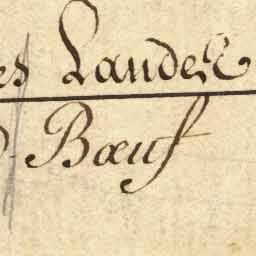 es Landes
Bœuf